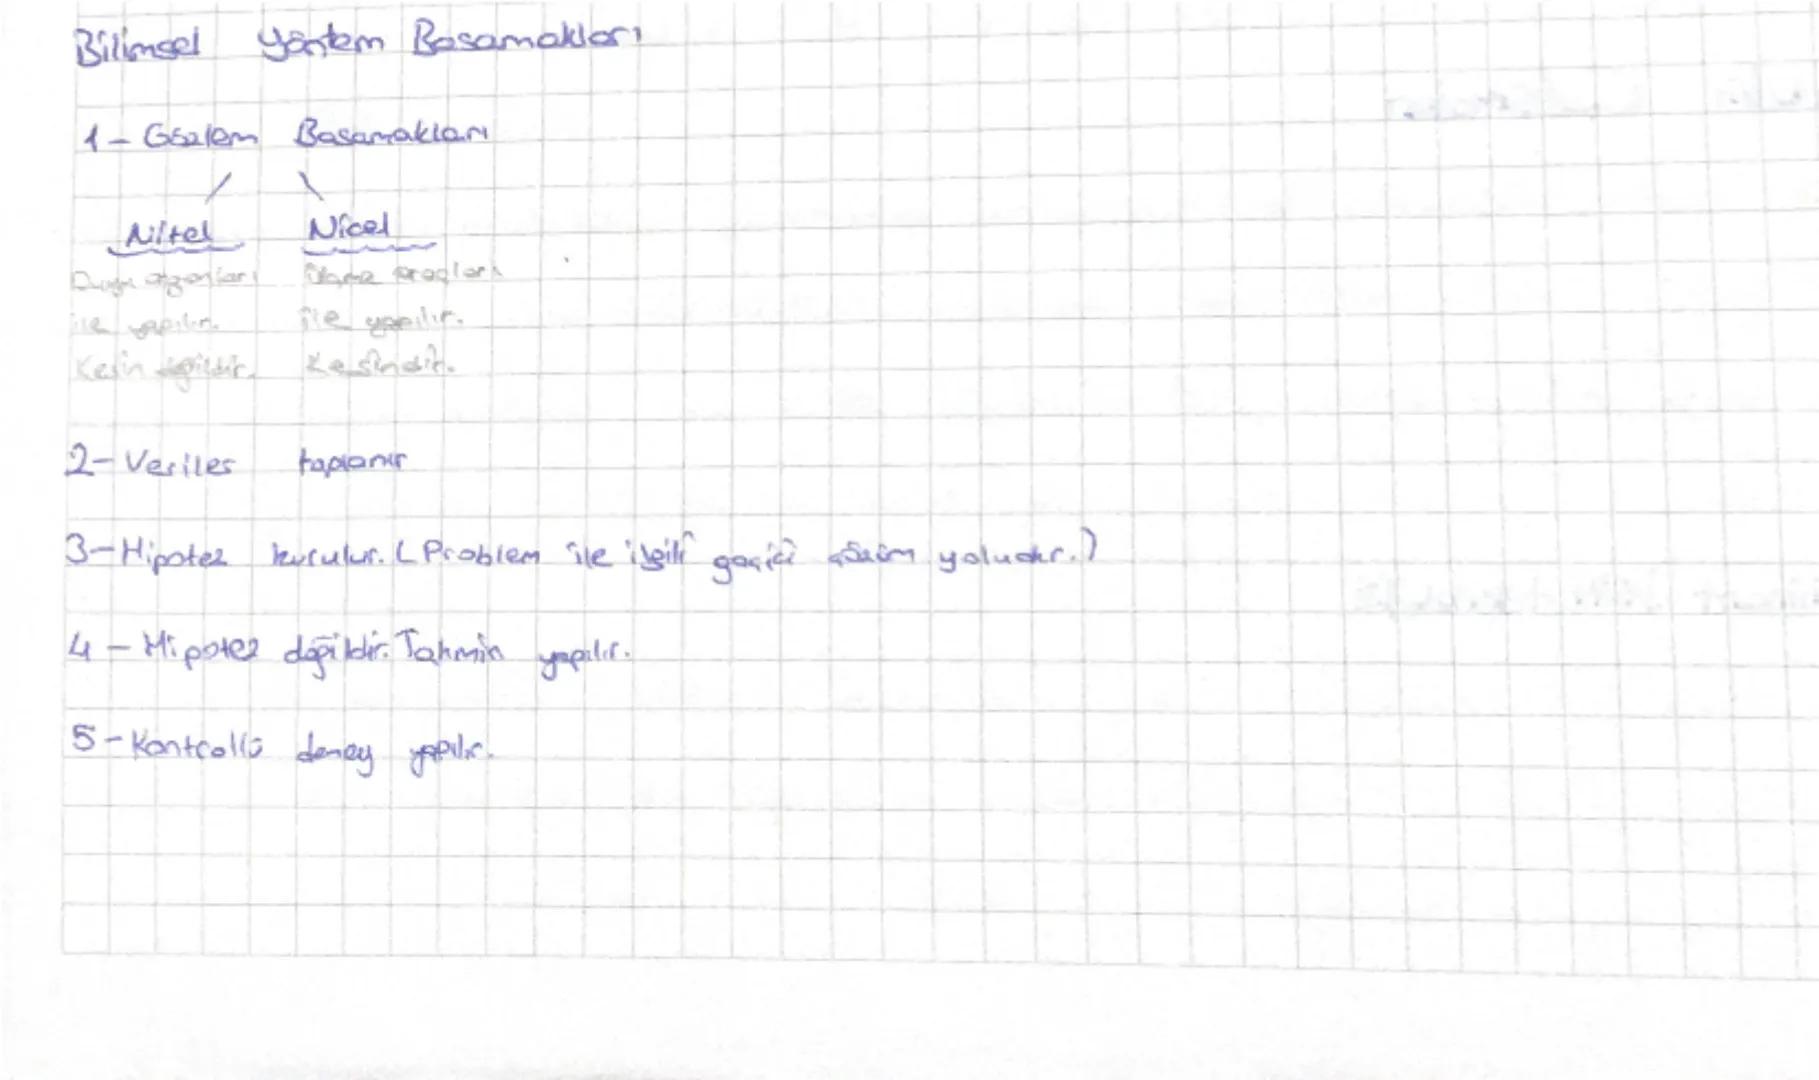 Bilimsel Yöntem Basamakları
1 - Gözlem Basamakları
Nitel Nicel
Duyu organları ölçme araçları
ile yapılır. ile yapılır.
Kesin değildir. Kesindir.
2 - Veriler toplanır
3 - Hipotez kurulur. ( Problem ile ilgili geçici çözüm yoludur. )
4 - Hipotez değildir. Tahmin yapılır.
5 - Kontrollü deney yapılır.